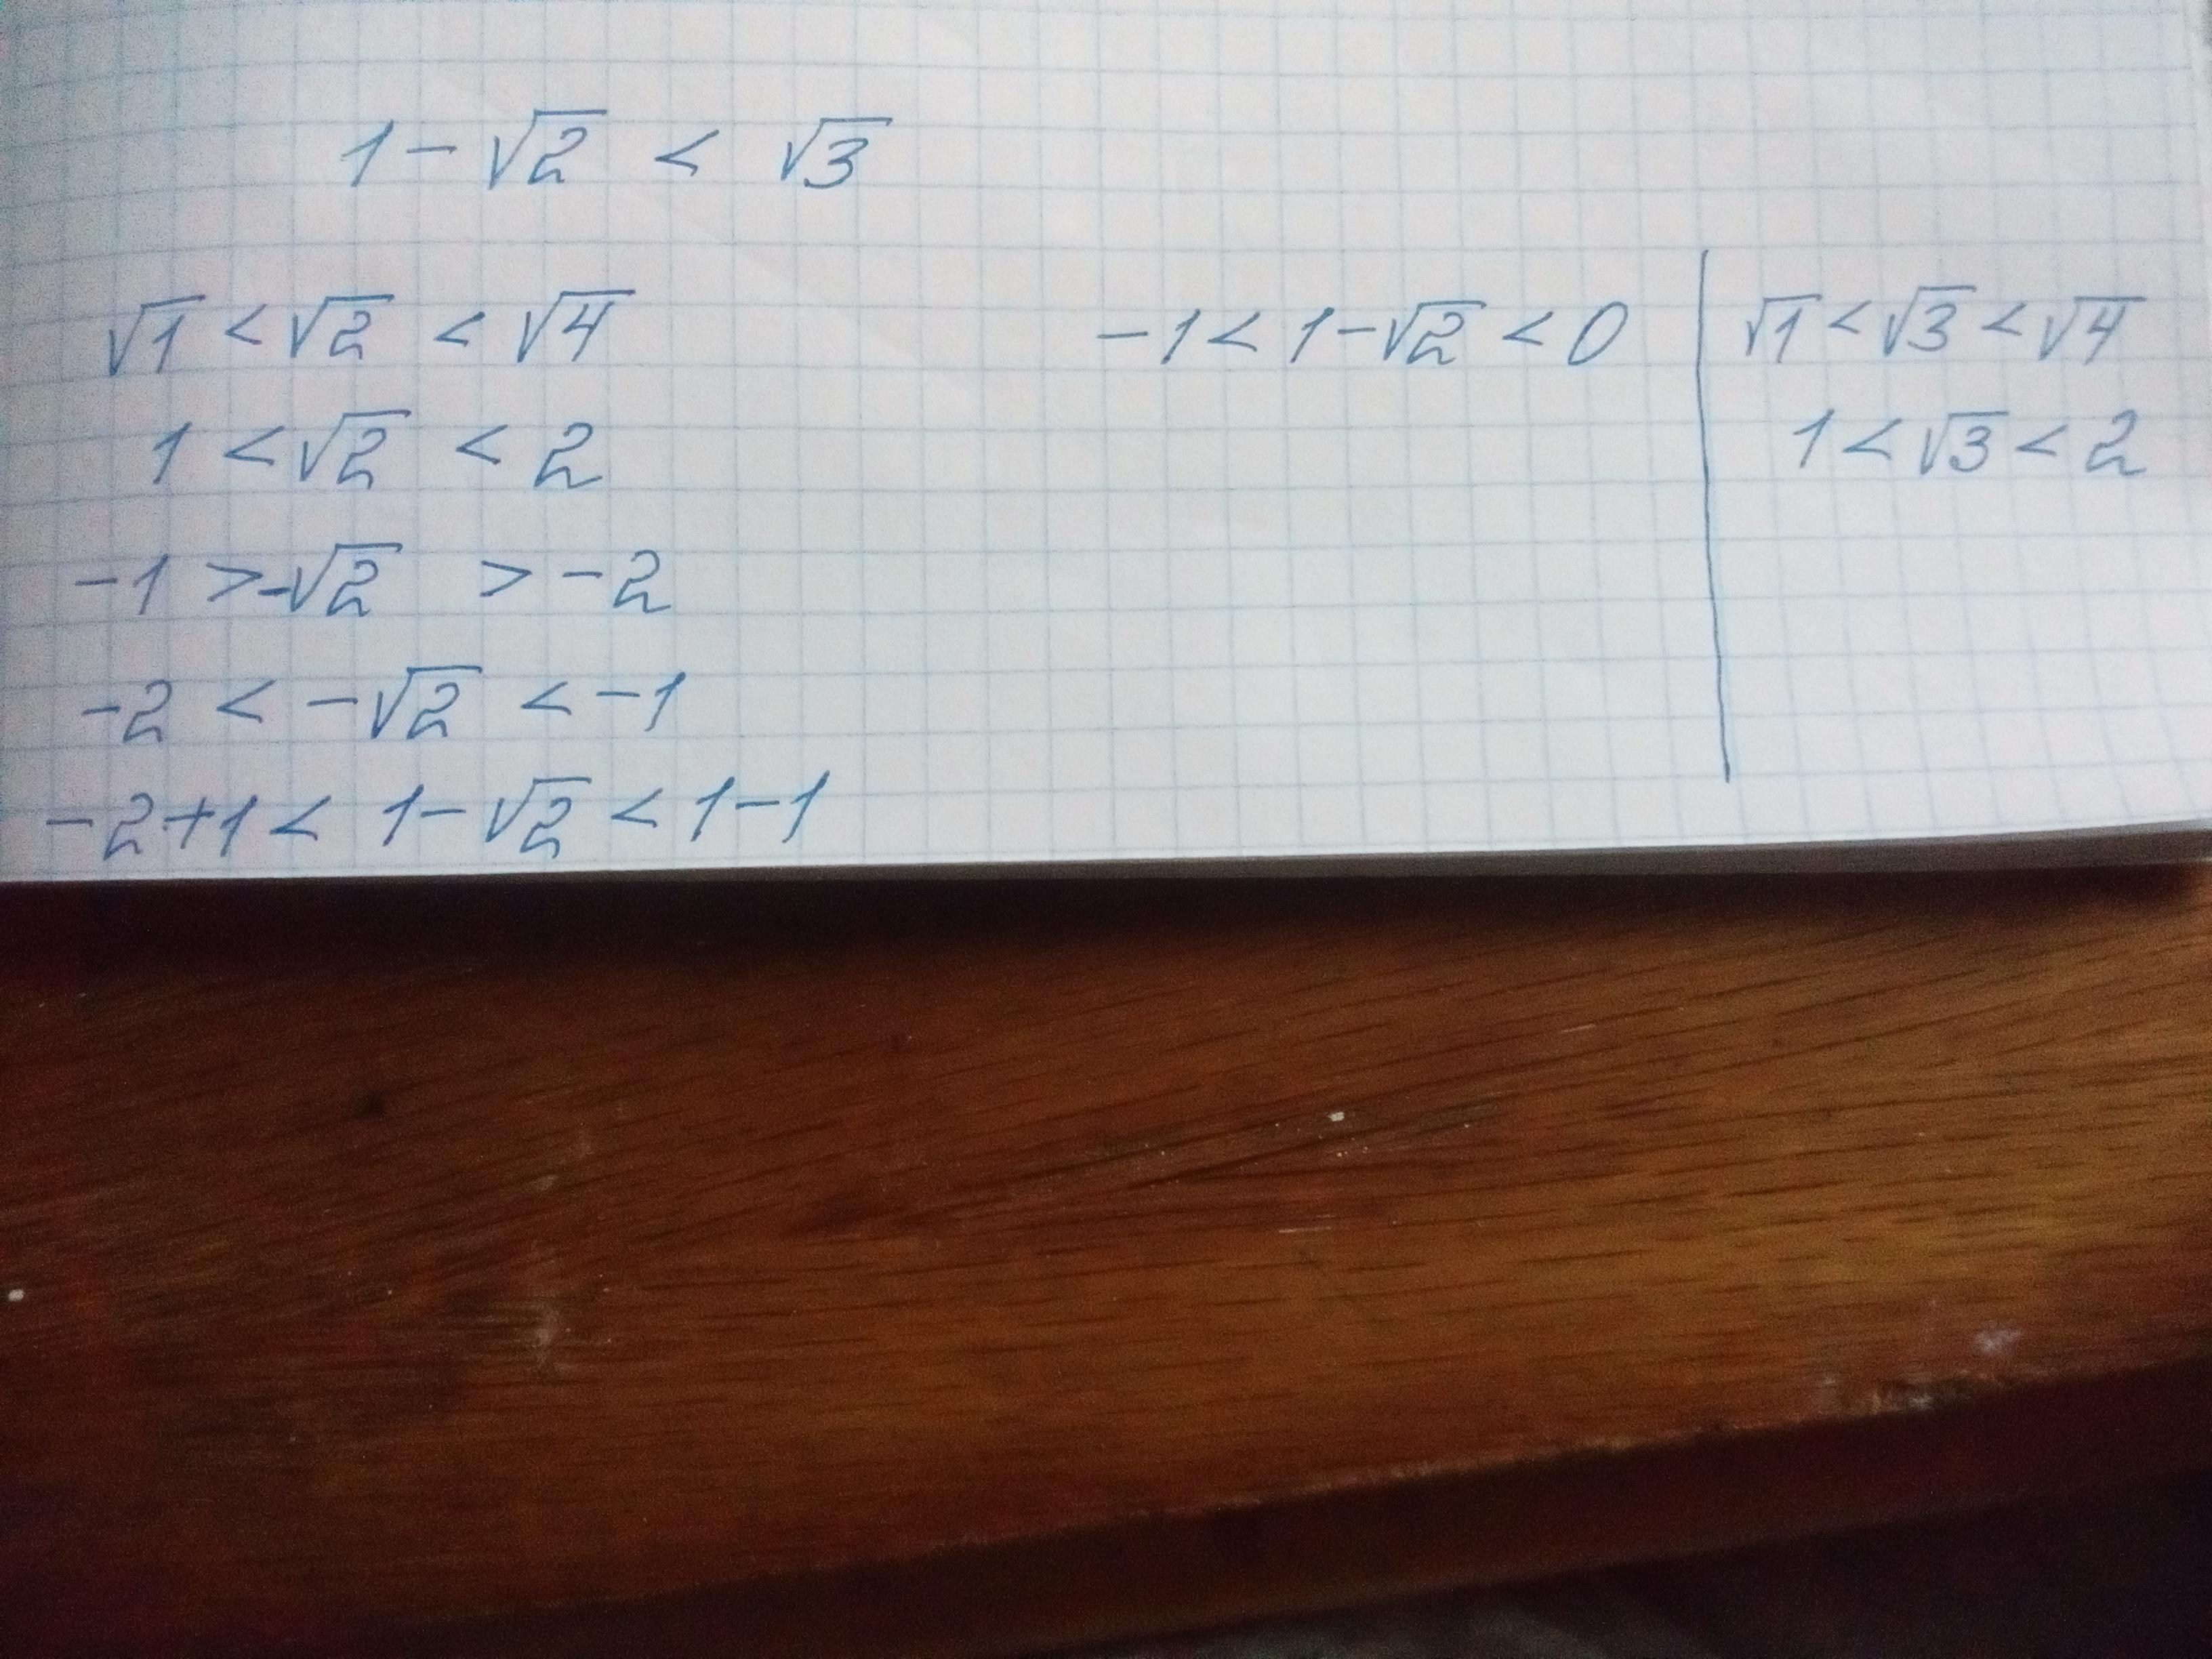 1 - √2 < √3
√1 < √2 < √4
1 < √2 < 2
-1 > -√2 > -2
-2 < -√2 < -1
-2+1 < 1-√2 < 1-1
-1 < 1-√2 < 0
√1 < √3 < √4
1 < √3 < 2